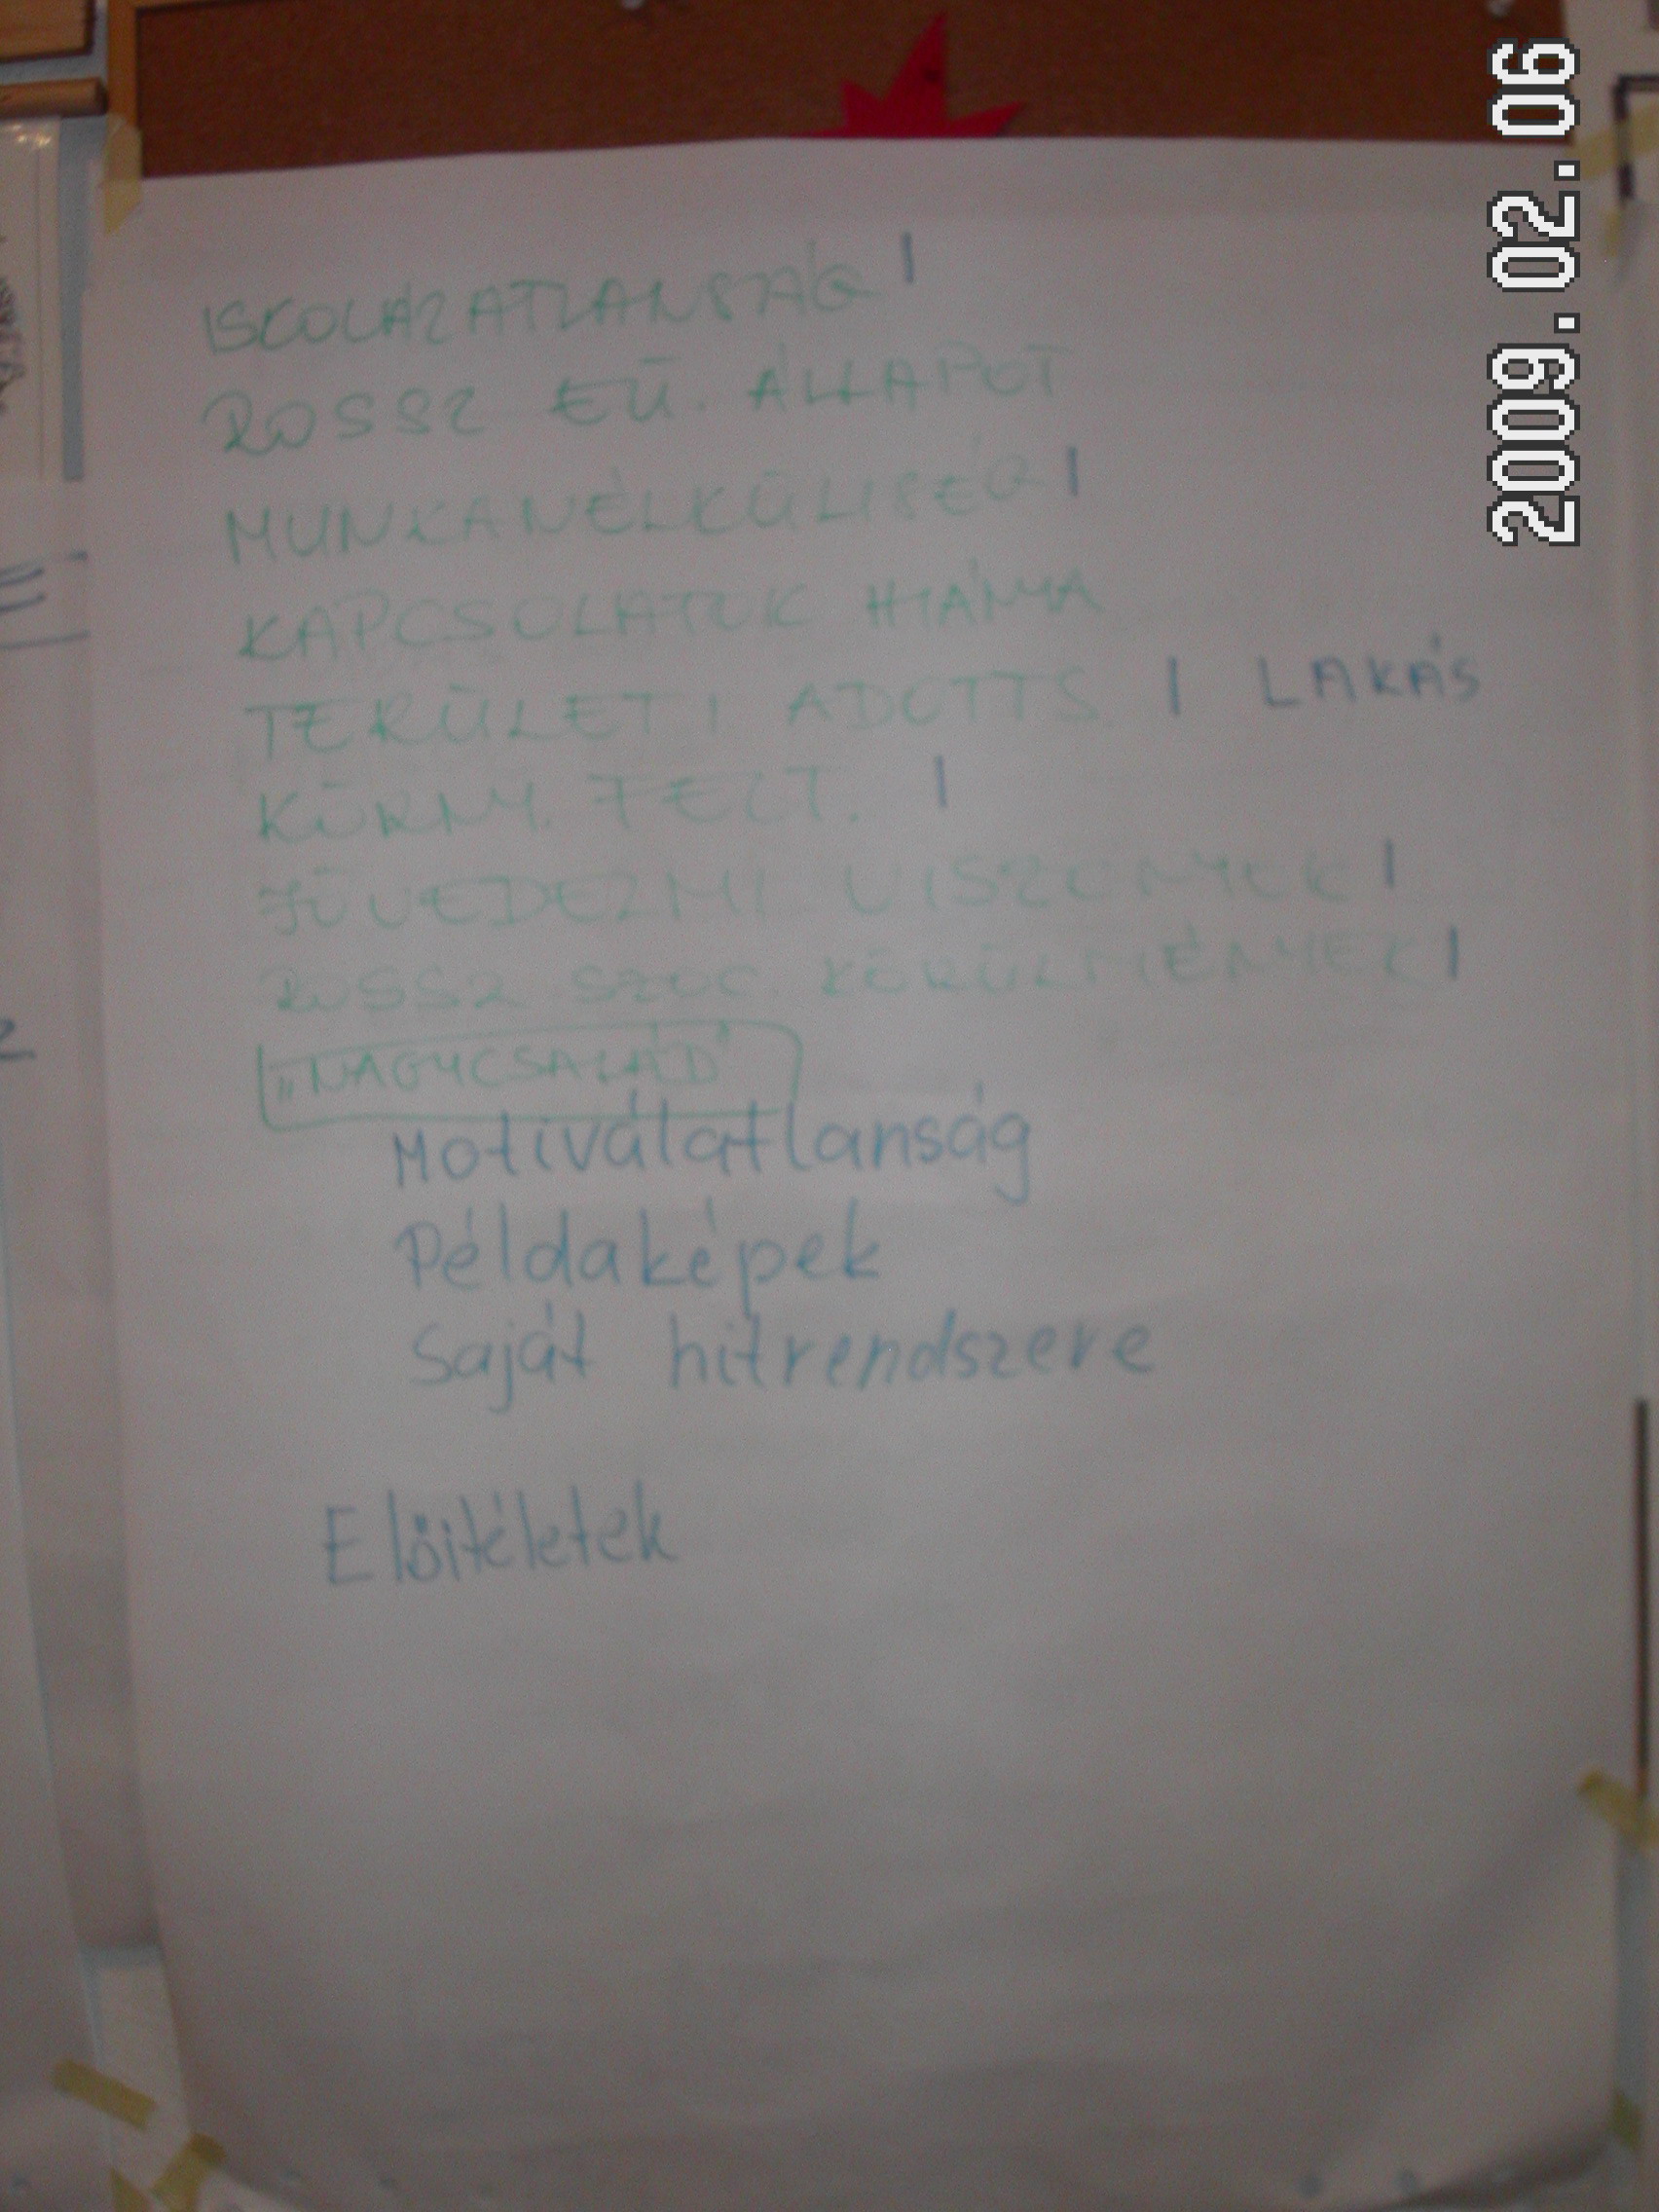 ISKOLÁZATLANSÁG |
ROSSZ EÜ. ÁLLAPOT
MUNKANÉLKÜLISÉG |
KAPCSOLATOK HIÁNYA
TERÜLETI ADOTTS | LAKÁS
KÖRNY. FELT. |
JÖVEDELMI VISZONYOK |
ROSSZ SZOC. KÖRÜLMÉNYEK |
„NAGYCSALÁD"
Motiválatlanság
Példaképek
Saját hitrendszere
Előítéletek
2009.02.06